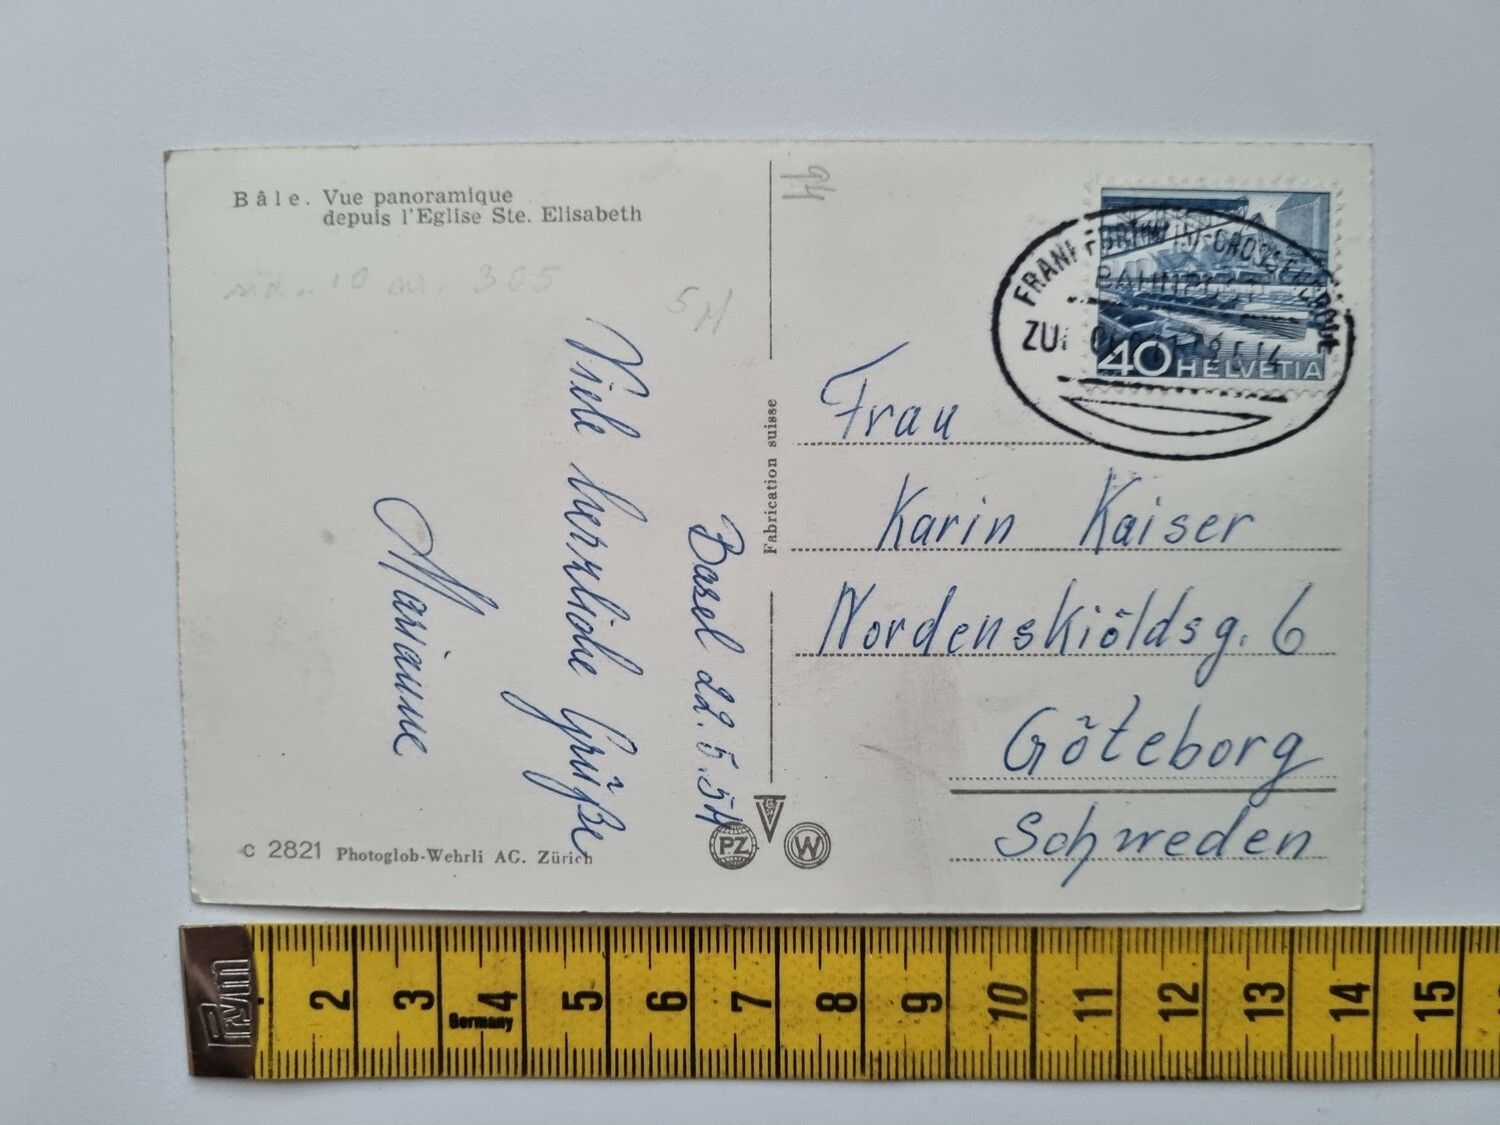 Bâle. Vue panoramique
depuis l'Eglise Ste. Elisabeth
nr. 305
54
94
Basel 22.5.54
Viele herzliche Grüße
Marianne
Fabrication suisse
40 HELVETIA
BAHNPOST
ZUG
Frau
Karin Kaiser
Nordenskiöldsg. 6
Göteborg
Schweden
c 2821 Photoglob-Wehrli AG. Zürich
PZ
W
Prym
2 3 4 5 6 7 8 9 10 11 12 13 14 15
Germany